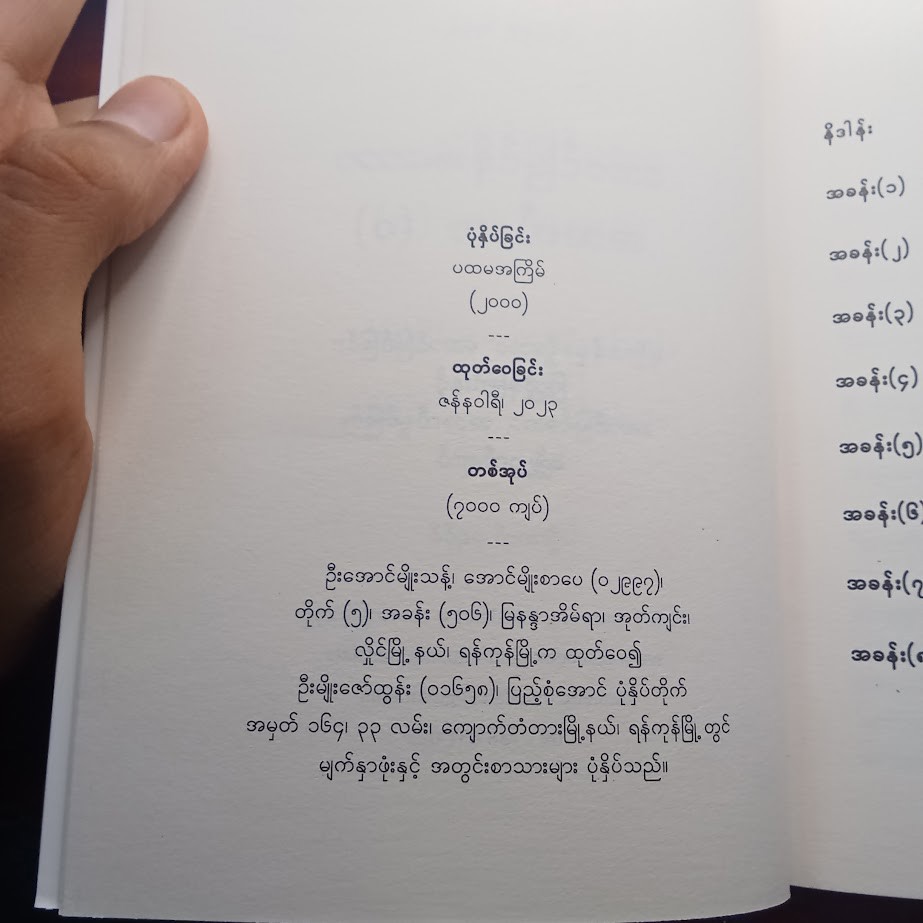 ပုံနှိပ်ခြင်း
ပထမအကြိမ်
(၂၀၀၀)
---
ထုတ်ဝေခြင်း
ဇန်နဝါရီ၊ ၂၀၂၃
---
တစ်အုပ်
(၇၀၀၀ ကျပ်)
---
ဦးအောင်မျိုးသန့်၊ အောင်မျိုးစာပေ (၀၂၉၉၇)၊
တိုက် (၅)၊ အခန်း (၅၀၆)၊ မြနန္ဒာအိမ်ရာ၊ အုတ်ကျင်း၊
လှိုင်မြို့နယ်၊ ရန်ကုန်မြို့က ထုတ်ဝေ၍
ဦးမျိုးဇော်ထွန်း (၀၁၆၅၈)၊ ပြည့်စုံအောင် ပုံနှိပ်တိုက်
အမှတ် ၁၆၄၊ ၃၃ လမ်း၊ ကျောက်တံတားမြို့နယ်၊ ရန်ကုန်မြို့တွင်
မျက်နှာဖုံးနှင့် အတွင်းစာသားများ ပုံနှိပ်သည်။
နိဒါန်း
အခန်း(၁)
အခန်း(၂)
အခန်း(၃)
အခန်း(၄)
အခန်း(၅)
အခန်း(၆)
အခန်း(၇
အခန်း(